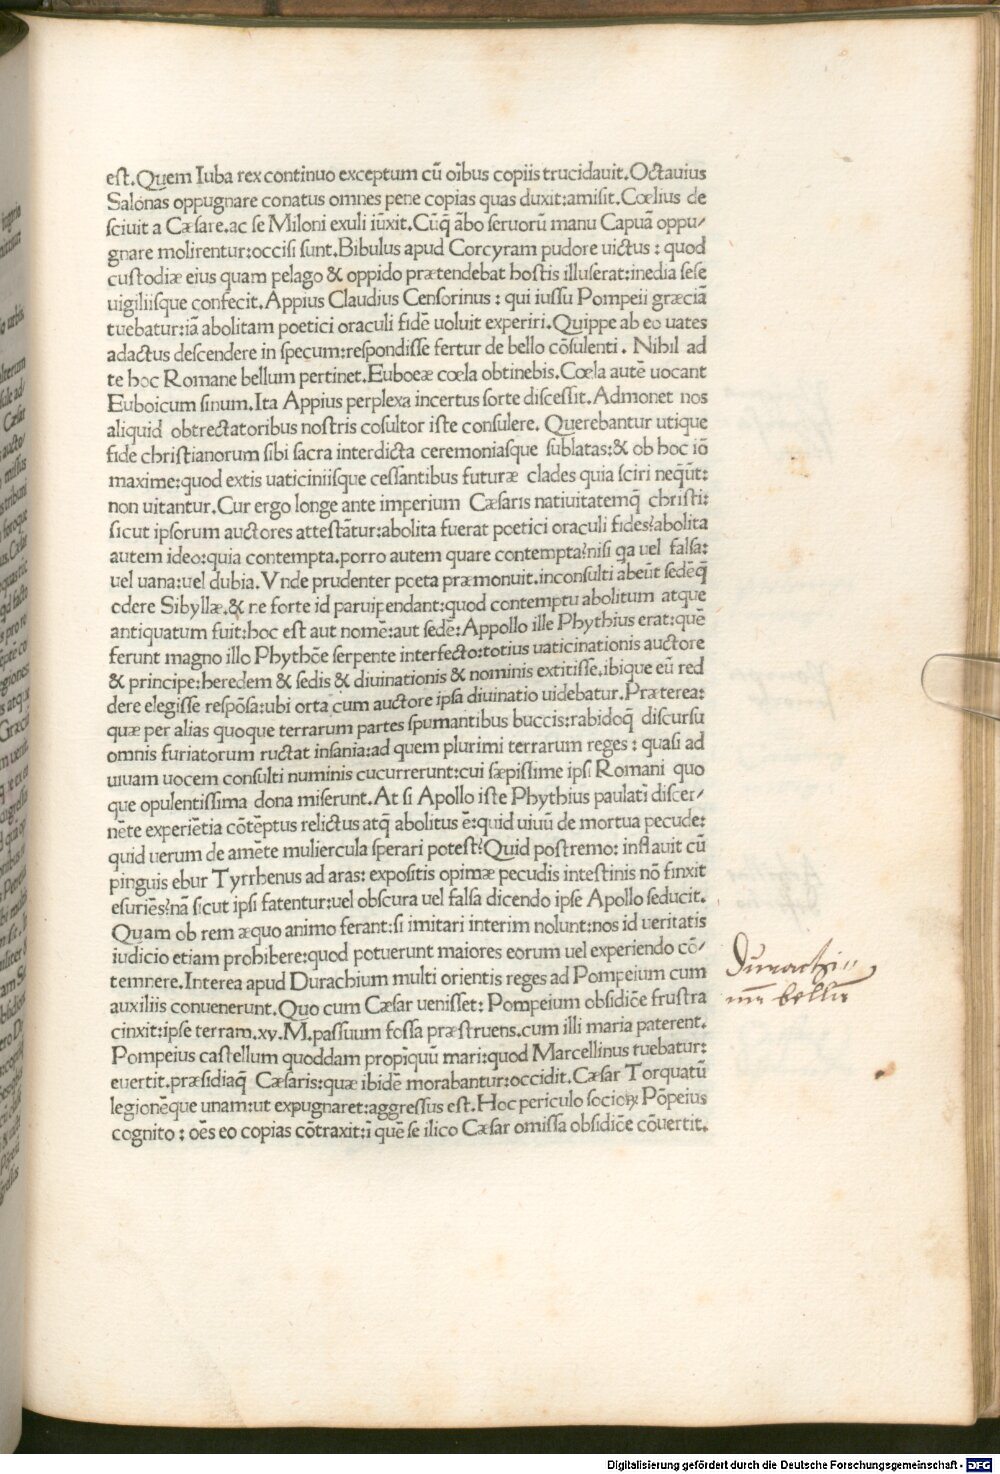 est. Quem Iuba rex continuo exceptum cū oībus copiis trucidauit. Octauius
Salonas oppugnare conatus omnes pene copias quas duxit:amisit. Cœlius de
sciuit a Cæsare.ac se Miloni exuli iūxit. Cūq̄ ābo seruorū manu Capuā oppu/
gnare molirentur:occisi sunt. Bibulus apud Corcyram pudore uictus : quod
custodiæ eius quam pelago & oppido prætendebat hostis illuserat:inedia sese
uigiliisque confecit. Appius Claudius Censorinus : qui iussu Pompeii græciā
tuebatur:iā abolitam poetici oraculi fidē uoluit experiri. Quippe ab eo uates
adactus descendere in specum:respondisse fertur de bello cōsulenti . Nihil ad
te hoc Romane bellum pertinet. Euboeæ cœla obtinebis. Cœla autē uocant
Euboicum sinum. Ita Appius perplexa incertus sorte discessit. Admonet nos
aliquid obtrectatoribus nostris cosultor iste consulere. Querebantur utique
fide christianorum sibi sacra interdicta ceremoniasque sublatas:& ob hoc iō
maxime:quod extis uaticiniisque cessantibus futuræ clades quia sciri neq̄ūt:
non uitantur. Cur ergo longe ante imperium Cæsaris natiuitatemq̄ christi:
sicut ipsorum auctores attestātur:abolita fuerat poetici oraculi fides?abolita
autem ideo:quia contempta.porro autem quare contempta?nisi qa uel falsa:
uel uana:uel dubia. Vnde prudenter poeta præmonuit.inconsulti abeūt sedēq̄
odere Sibyllæ.& ne forte id paruipendant:quod contemptu abolitum atque
antiquatum fuit:hoc est aut nomē:aut sedē: Appollo ille Phythius erat:quē
ferunt magno illo Phythōe serpente interfecto:totius uaticinationis auctore
& principe:heredem & sedis & diuinationis & nominis extitisse.ibique eū red
dere elegisse respōsa:ubi orta cum auctore ipsa diuinatio uidebatur. Præterea:
quæ per alias quoque terrarum partes spumantibus buccis:rabidoq̄ discursu
omnis furiatorum ructat insania:ad quem plurimi terrarum reges : quasi ad
uiuam uocem consulti numinis cucurrerunt:cui sæpissime ipsi Romani quo
que opulentissima dona miserunt. At si Apollo iste Phythius paulatī discer/
nēte experiētia cōtēptus relictus atq̄ abolitus ē:quid uiuū de mortua pecude:
quid uerum de amēte muliercula sperari potest?Quid postremo: inflauit cū
pinguis ebur Tyrrhenus ad aras: expositis opimæ pecudis intestinis nō finxit
esuriēs?nā sicut ipsi fatentur:uel obscura uel falsa dicendo ipse Apollo seducit.
Quam ob rem æquo animo ferant:si imitari interim nolunt:nos id ueritatis
iudicio etiam prohibere:quod potuerunt maiores eorum uel experiendo cō/
temnere. Interea apud Durachium multi orientis reges ad Pompeium cum
auxiliis conuenerunt. Quo cum Cæsar uenisset: Pompeium obsidiōe frustra
cinxit:ipse terram.xv.M.passuum fossa præstruens.cum illi maria paterent.
Pompeius castellum quoddam propīquū mari:quod Marcellinus tuebatur:
euertit.præsidiaq̄ Cæsaris:quæ ibidē morabantur:occidit. Cæsar Torquatū
legionēque unam:ut expugnaret:aggressus est. Hoc periculo socioꝝ Pōpeius
cognito : oēs eo copias cōtraxit:ī quē se ilico Cæsar omissa obsidiōe cōuertit.
Durachi
num bellū
Digitalisierung gefördert durch die Deutsche Forschungsgemeinschaft - DFG